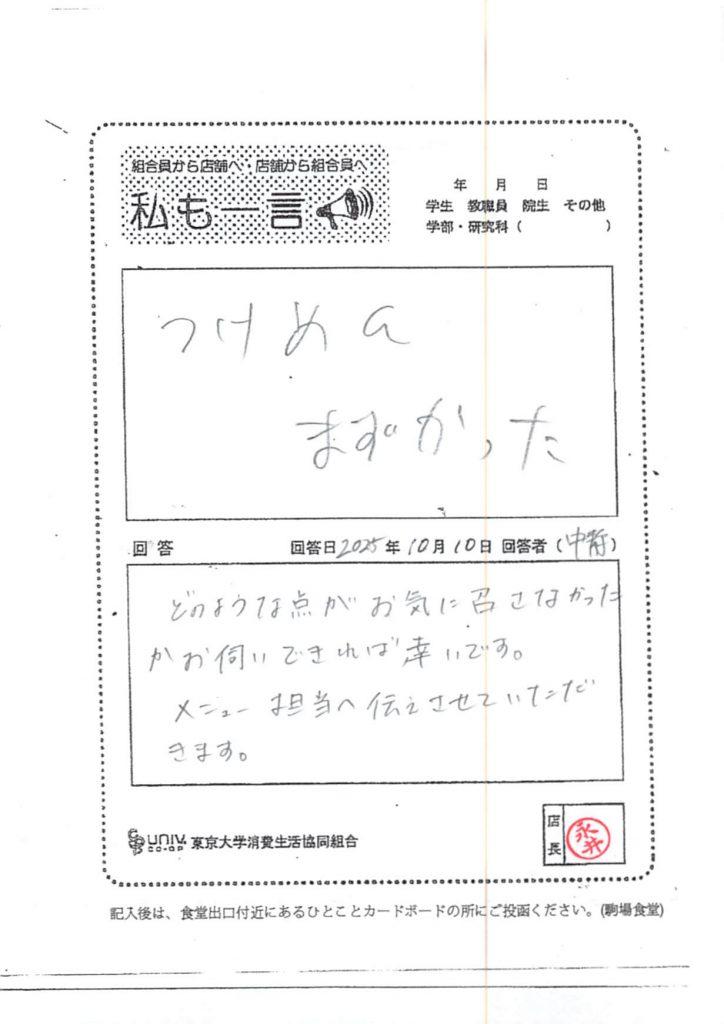 組合員から店舗へ・店舗から組合員へ
私も一言
年 月 日
学生 教職員 院生 その他
学部・研究科（ ）
つけめん
まずかった
回答 回答日2025年10月10日 回答者（中静）
どのような点がお気に召さなかった
かお伺いできれば幸いです。
メニュー担当へ伝えさせていただ
きます。
UNIV. CO-OP 東京大学消費生活協同組合
店長 永井
記入後は、食堂出口付近にあるひとことカードボードの所にご投函ください。(駒場食堂)